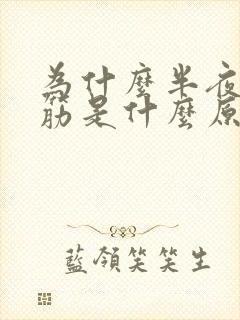 為什麼半夜
筋是什麼原
藍領笑笑生